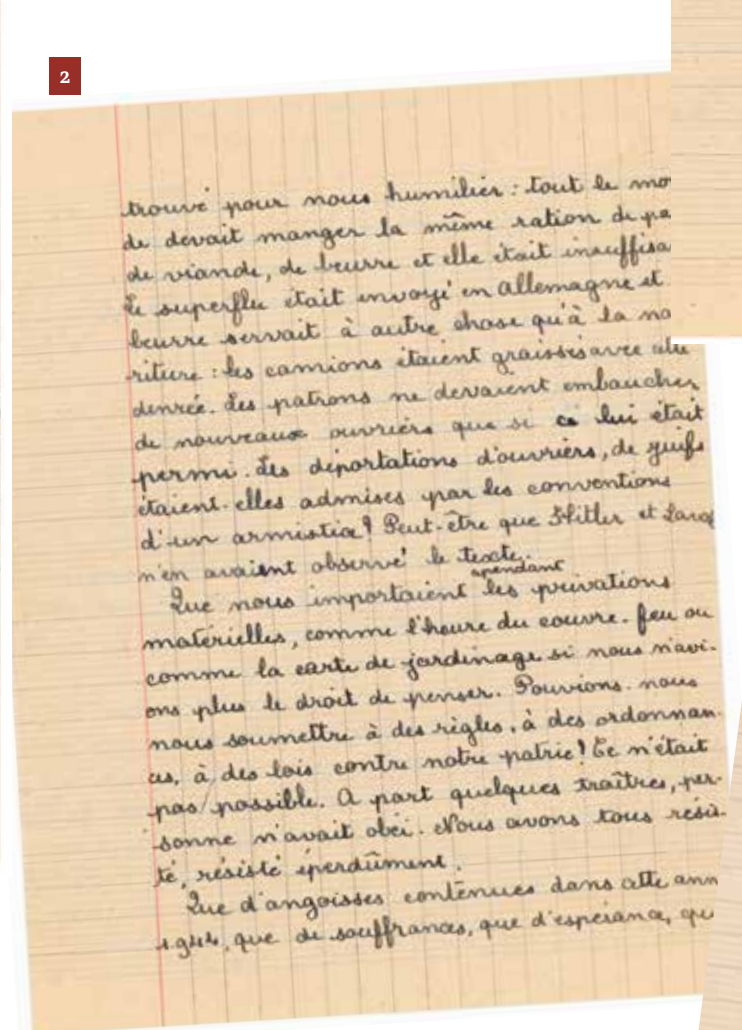 2
trouvé pour nous humilier : tout le mo
de devait manger la même ration de pa
de viande, de beurre et elle était insuffisa
Le superflu était envoyé en Allemagne et
beurre servait à autre chose qu'à la no
riture : les camions étaient graissés avec
denrée. Les patrons ne devaient embaucher
de nouveaux ouvriers que si ce lui était
permi. Les déportations d'ouvriers, de juifs
étaient-elles admises par les conventions
d'un armistice ? Peut-être que Hitler et
n'en avaient observé le texte.
cependant
Que nous importaient les privations
matérielles, comme l'heure du couvre-feu ou
comme la carte de jardinage si nous n'avi-
ons plus le droit de penser. Pouvions-nous
nous soumettre à des règles, à des ordonnan-
ces, à des lois contre notre patrie ! Ce n'était
pas possible. A part quelques traîtres, per-
sonne n'avait obéi. Nous avons tous résis-
té, résisté éperdûment.
Que d'angoisses contenues dans cette ann
1944, que de souffrances, que d'espérance, qu